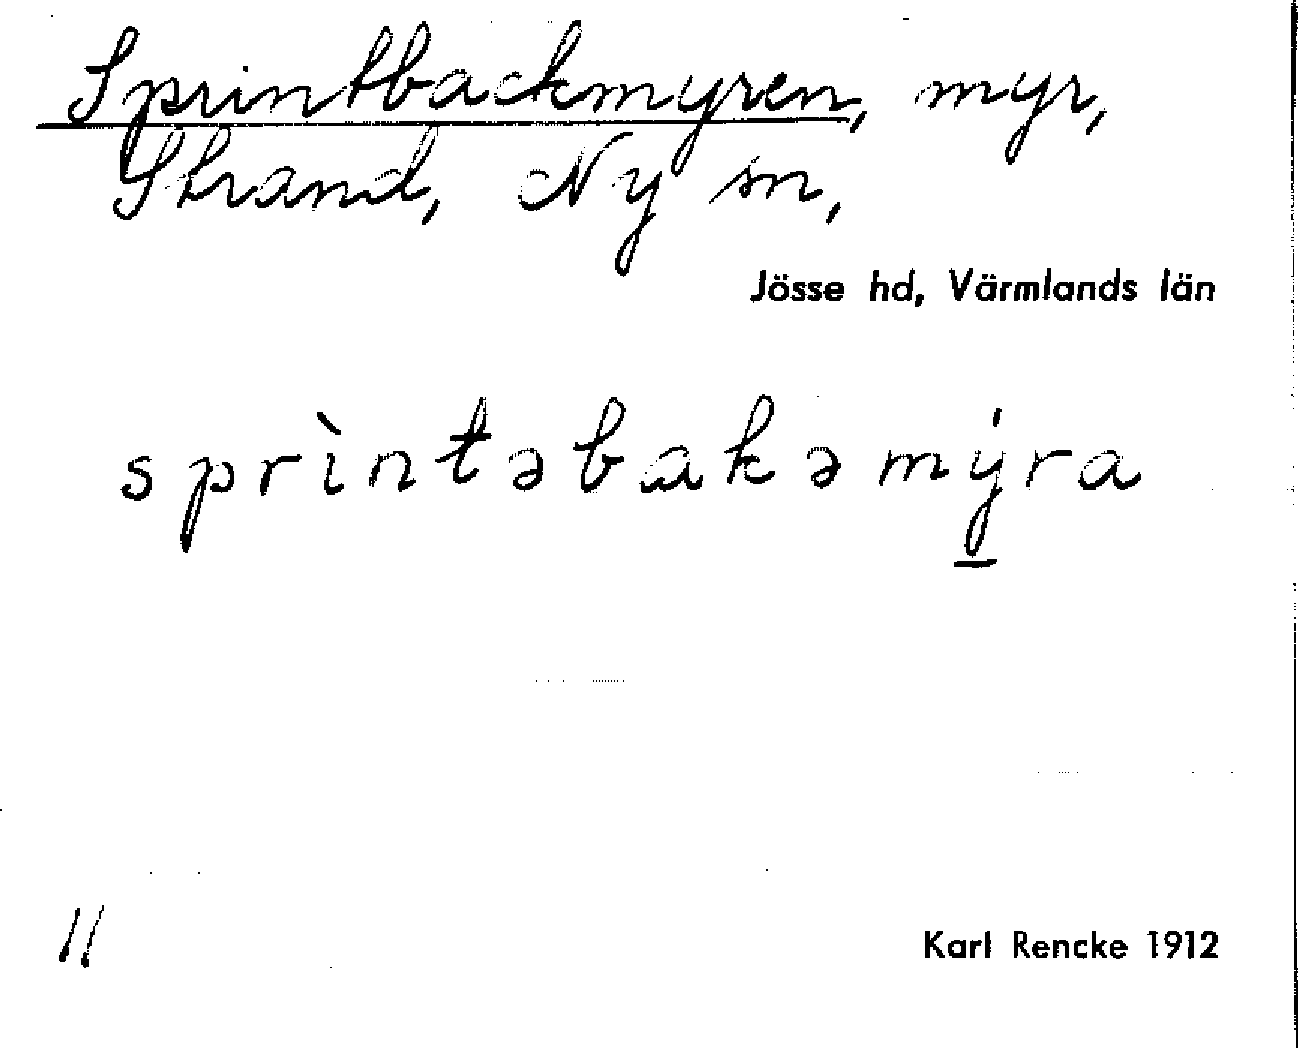 Sprintbackmyren, myr,
Strand, Ny sn,
Jösse hd, Värmlands län
sprìntəbakəmýra
11
Karl Rencke 1912